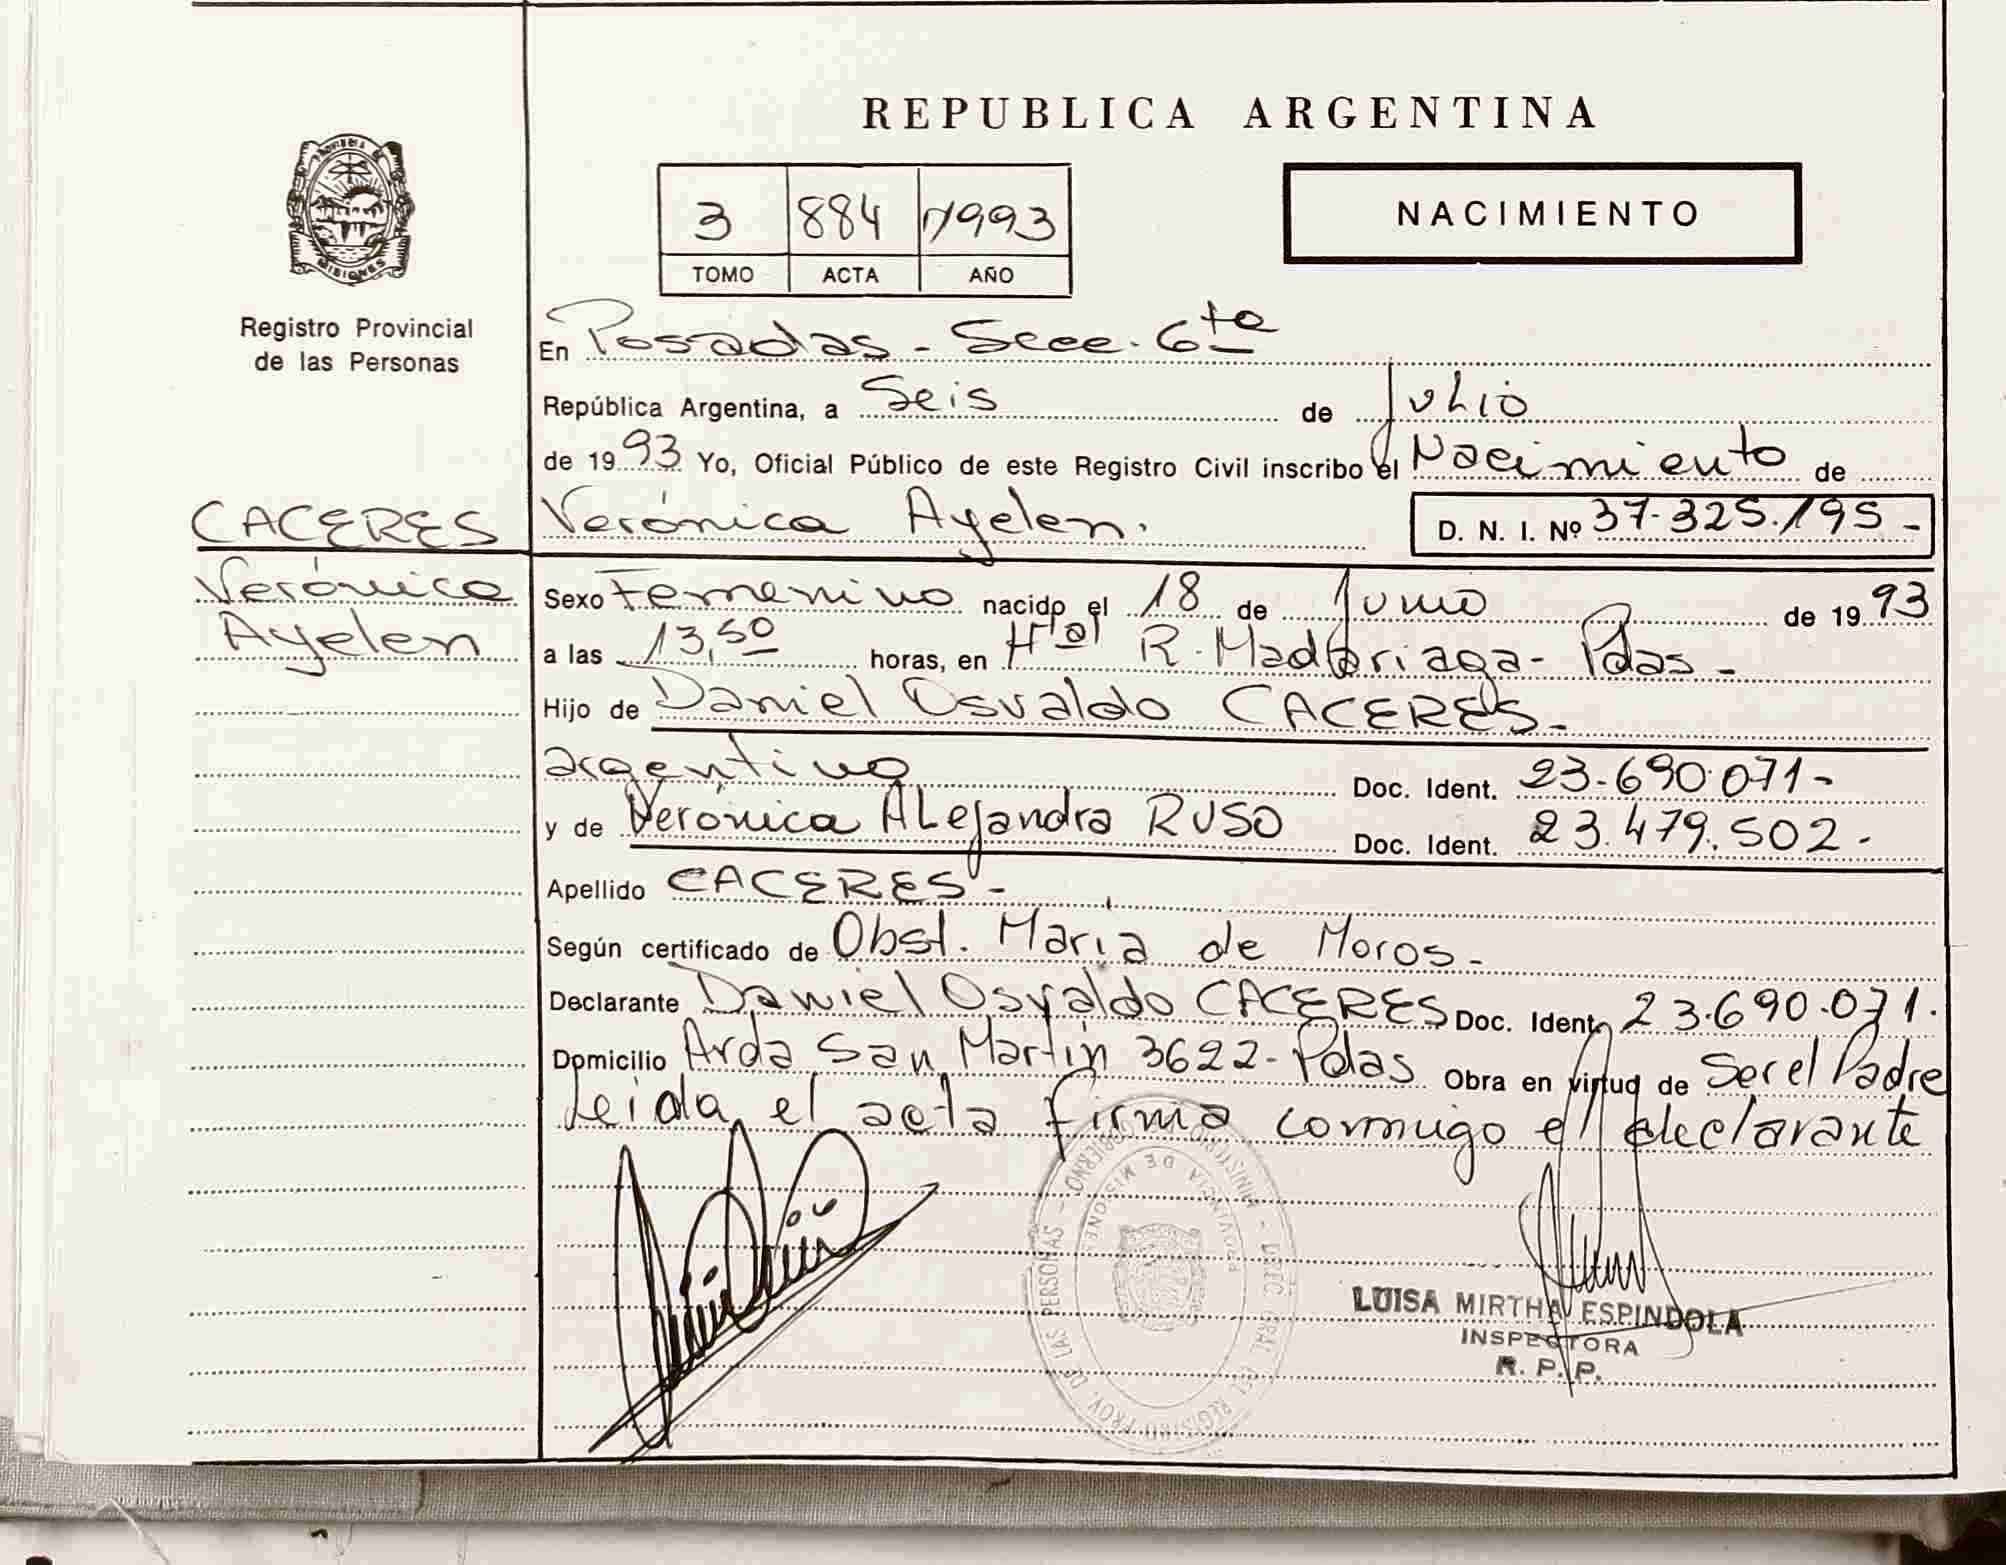 REPUBLICA ARGENTINA
PROVINCIA DE
MISIONES
Registro Provincial
de las Personas
3 884 1993
TOMO ACTA AÑO
NACIMIENTO
En Posadas - Secc. 6ta
República Argentina, a Seis de Julio
de 1993 Yo, Oficial Público de este Registro Civil inscribo el Nacimiento de
CACERES
Verónica Ayelen
Verónica Ayelen. D. N. I. Nº 37.325.195-
Sexo Femenino nacido el 18 de Junio de 1993
a las 13,50 horas, en Htal R. Madariaga - Pdas -
Hijo de Daniel Osvaldo CACERES -
argentino Doc. Ident. 23.690.071-
y de Verónica ALejandra RUSO Doc. Ident. 23.479.502-
Apellido CACERES -
Según certificado de Obst. Maria de Moros -
Declarante Daniel Osvaldo CACERES Doc. Ident. 23.690.071.
Domicilio Avda San Martín 3622 - Pdas Obra en virtud de Ser el Padre
Leida el acta firma conmigo el declarante
MINISTERIO GOBIERNO - DIREC. GRAL. DEL REGISTRO PROV. DE LAS PERSONAS -
PROVINCIA DE MISIONES
LUISA MIRTHA ESPINDOLA
INSPECTORA
R. P. P.